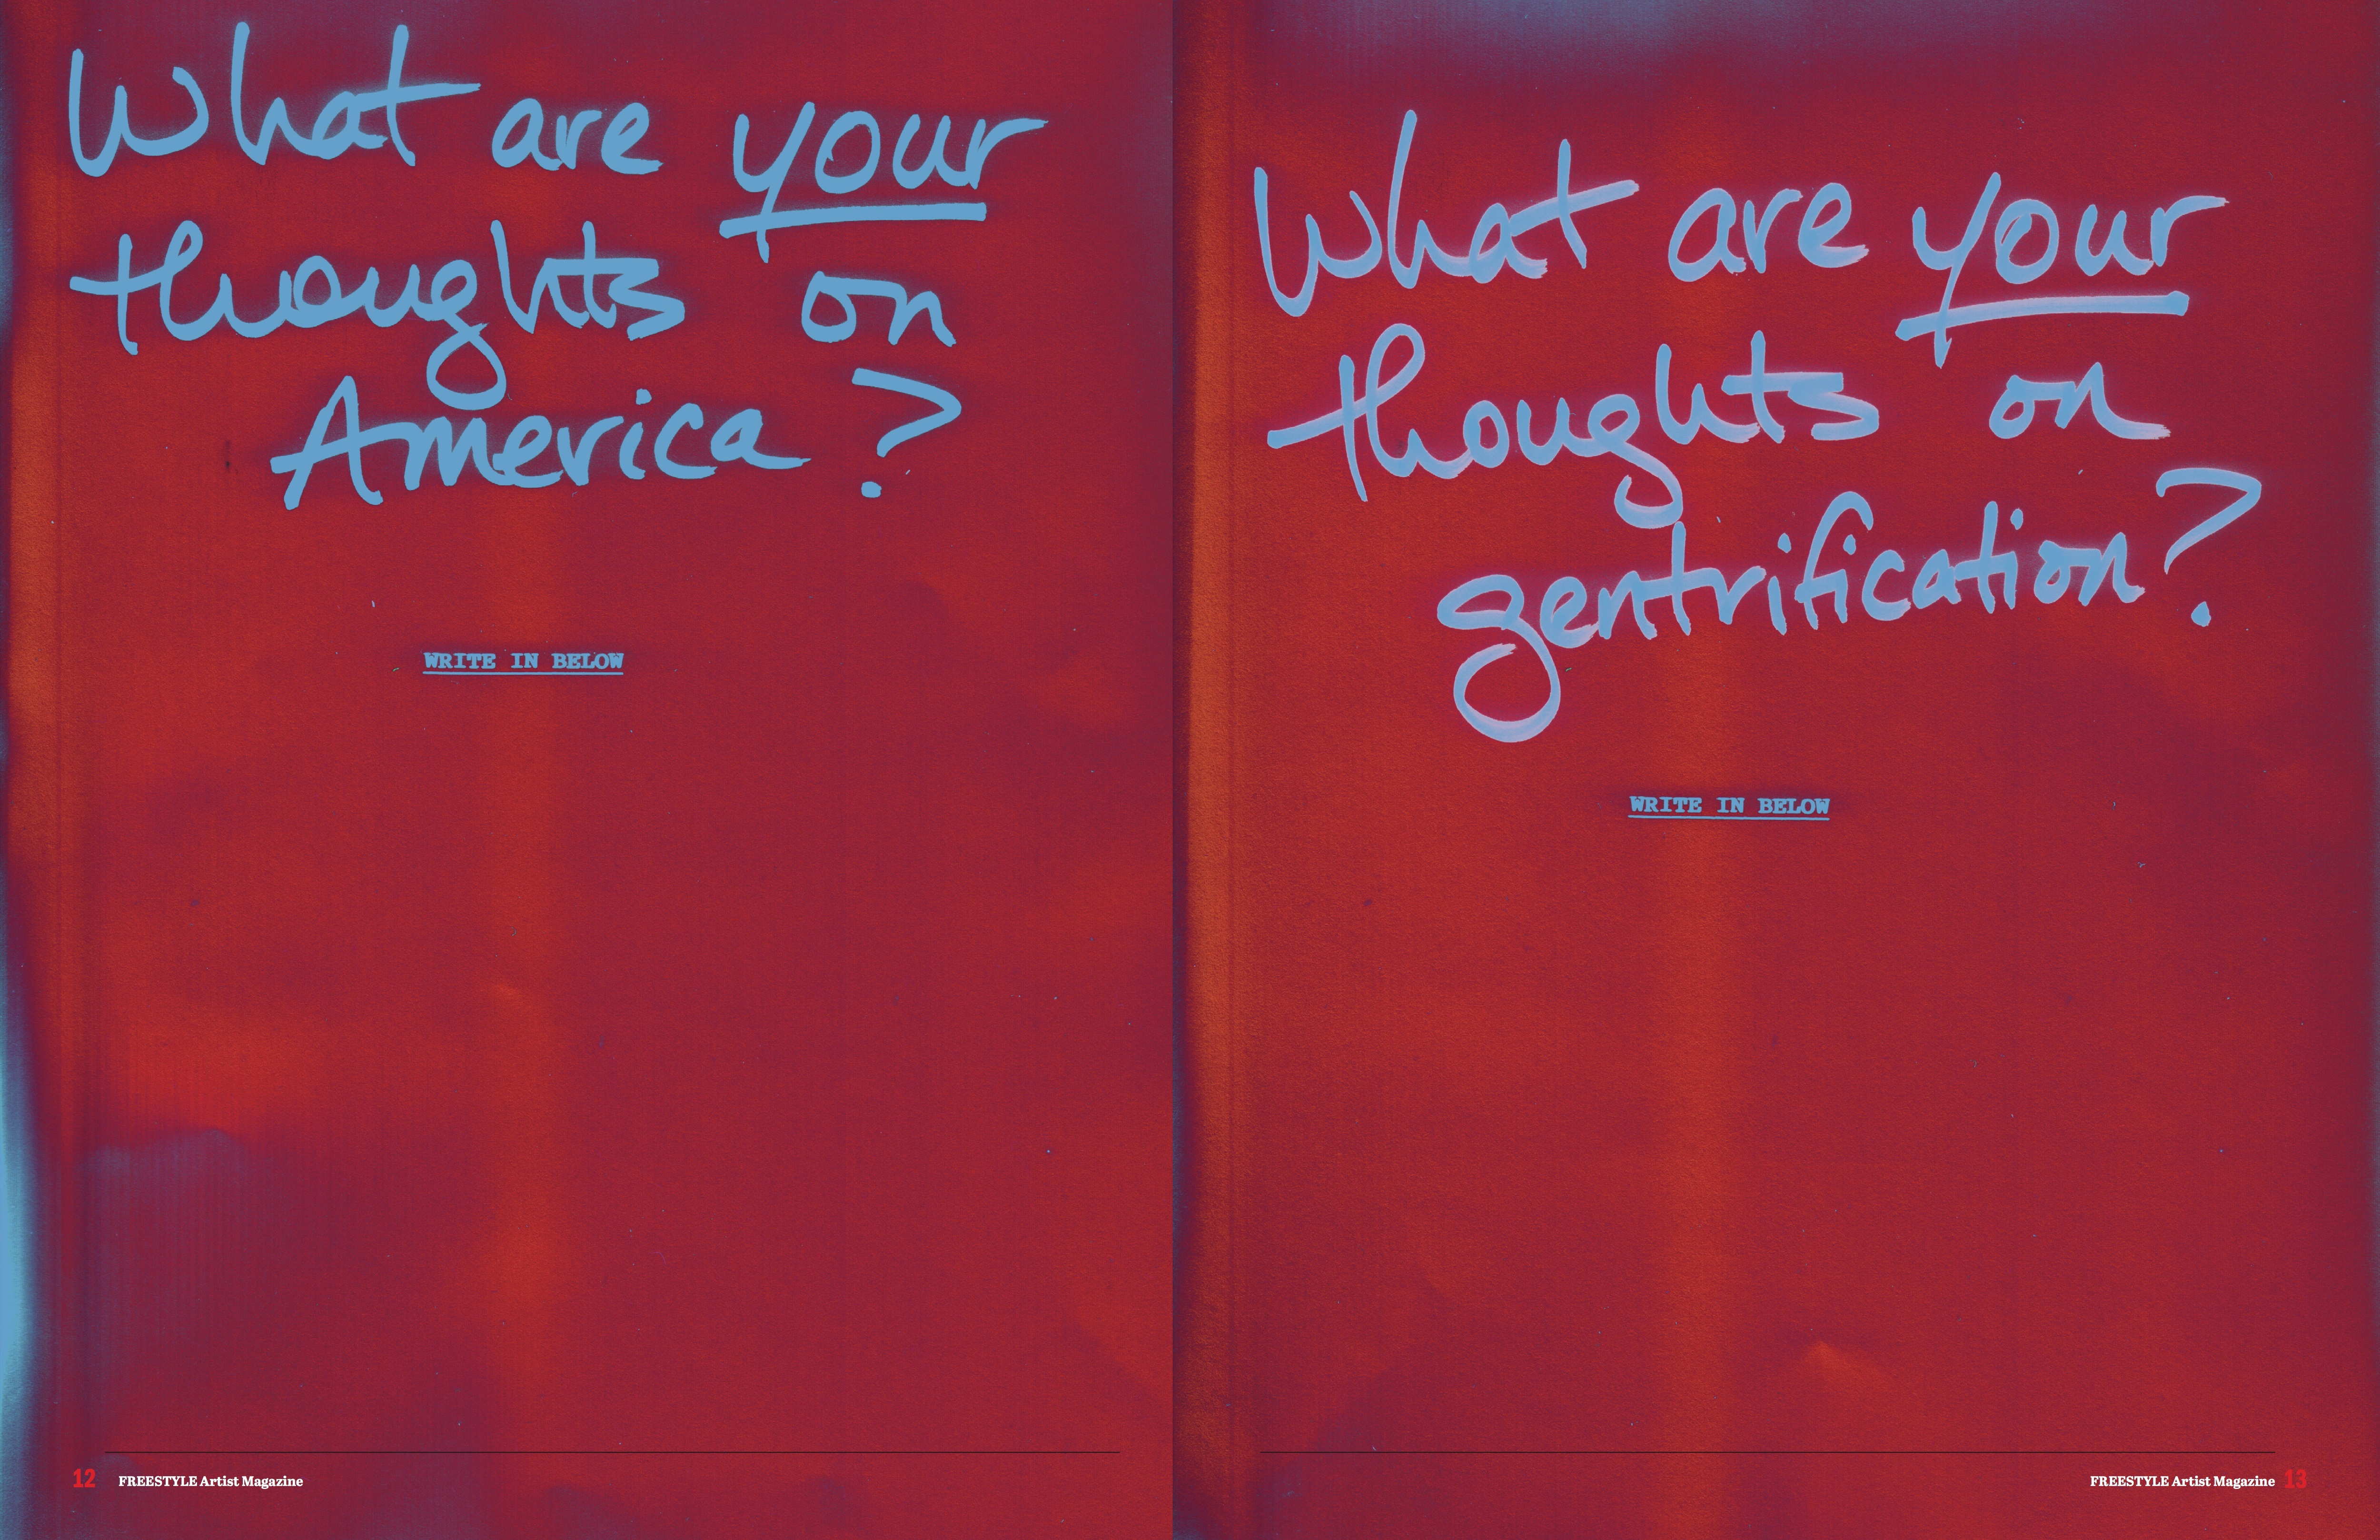 What are your
thoughts on
America?
WRITE IN BELOW
12 FREESTYLE Artist Magazine
What are your
thoughts on
gentrification?
WRITE IN BELOW
FREESTYLE Artist Magazine 13